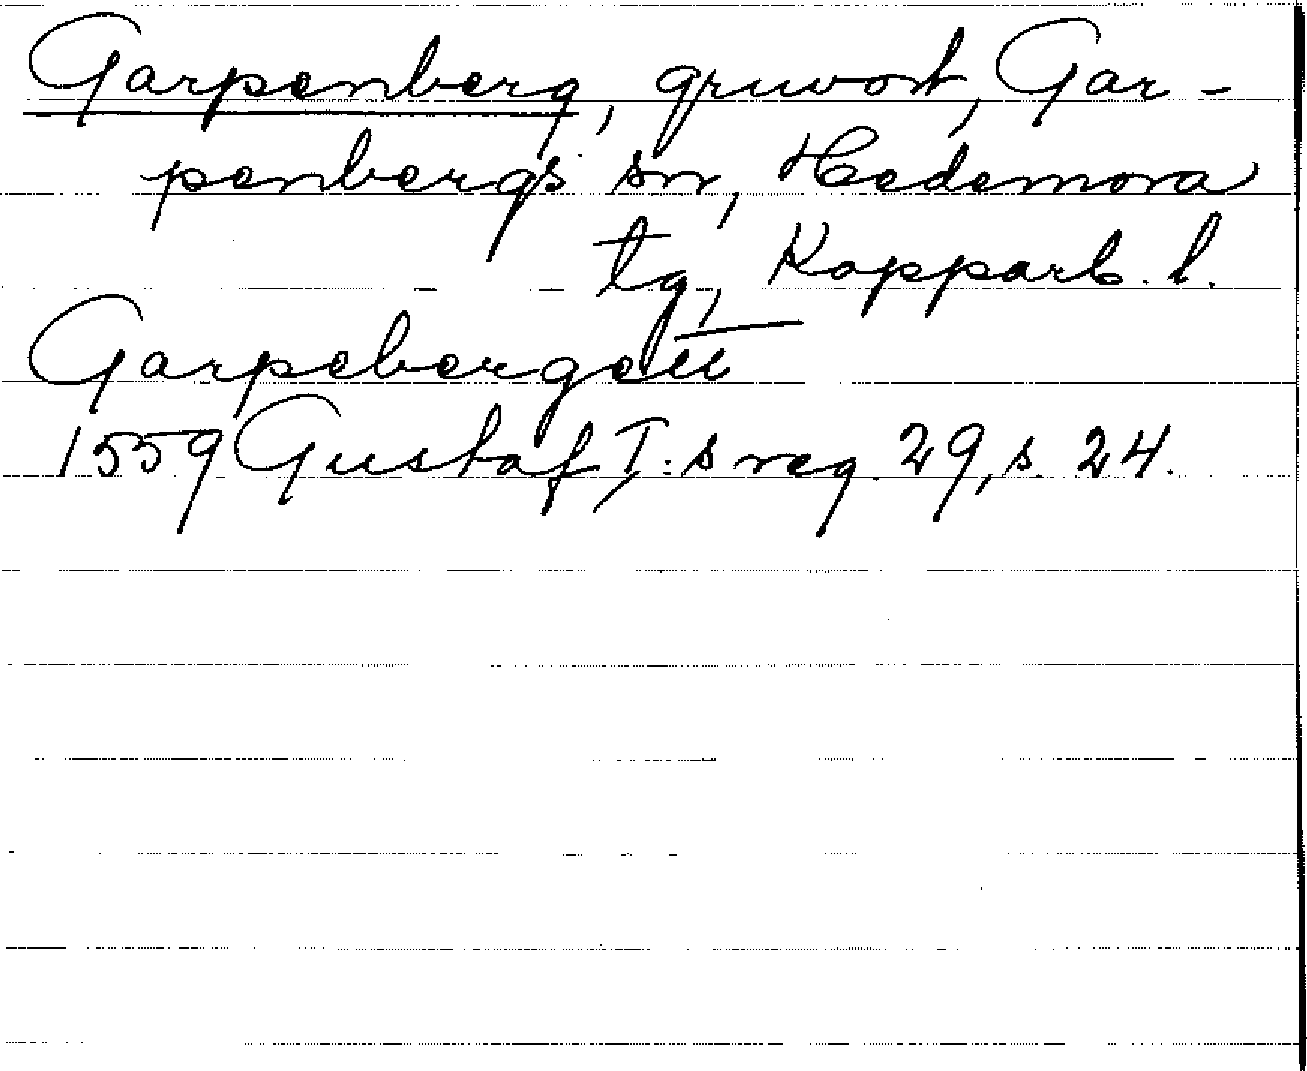 Garpenberg, gruvort, Gar-
penbergs sn, Hedemora
tg, Kopparb. l.
Garpebergett
1559 Gustaf I:s reg. 29, s. 24.